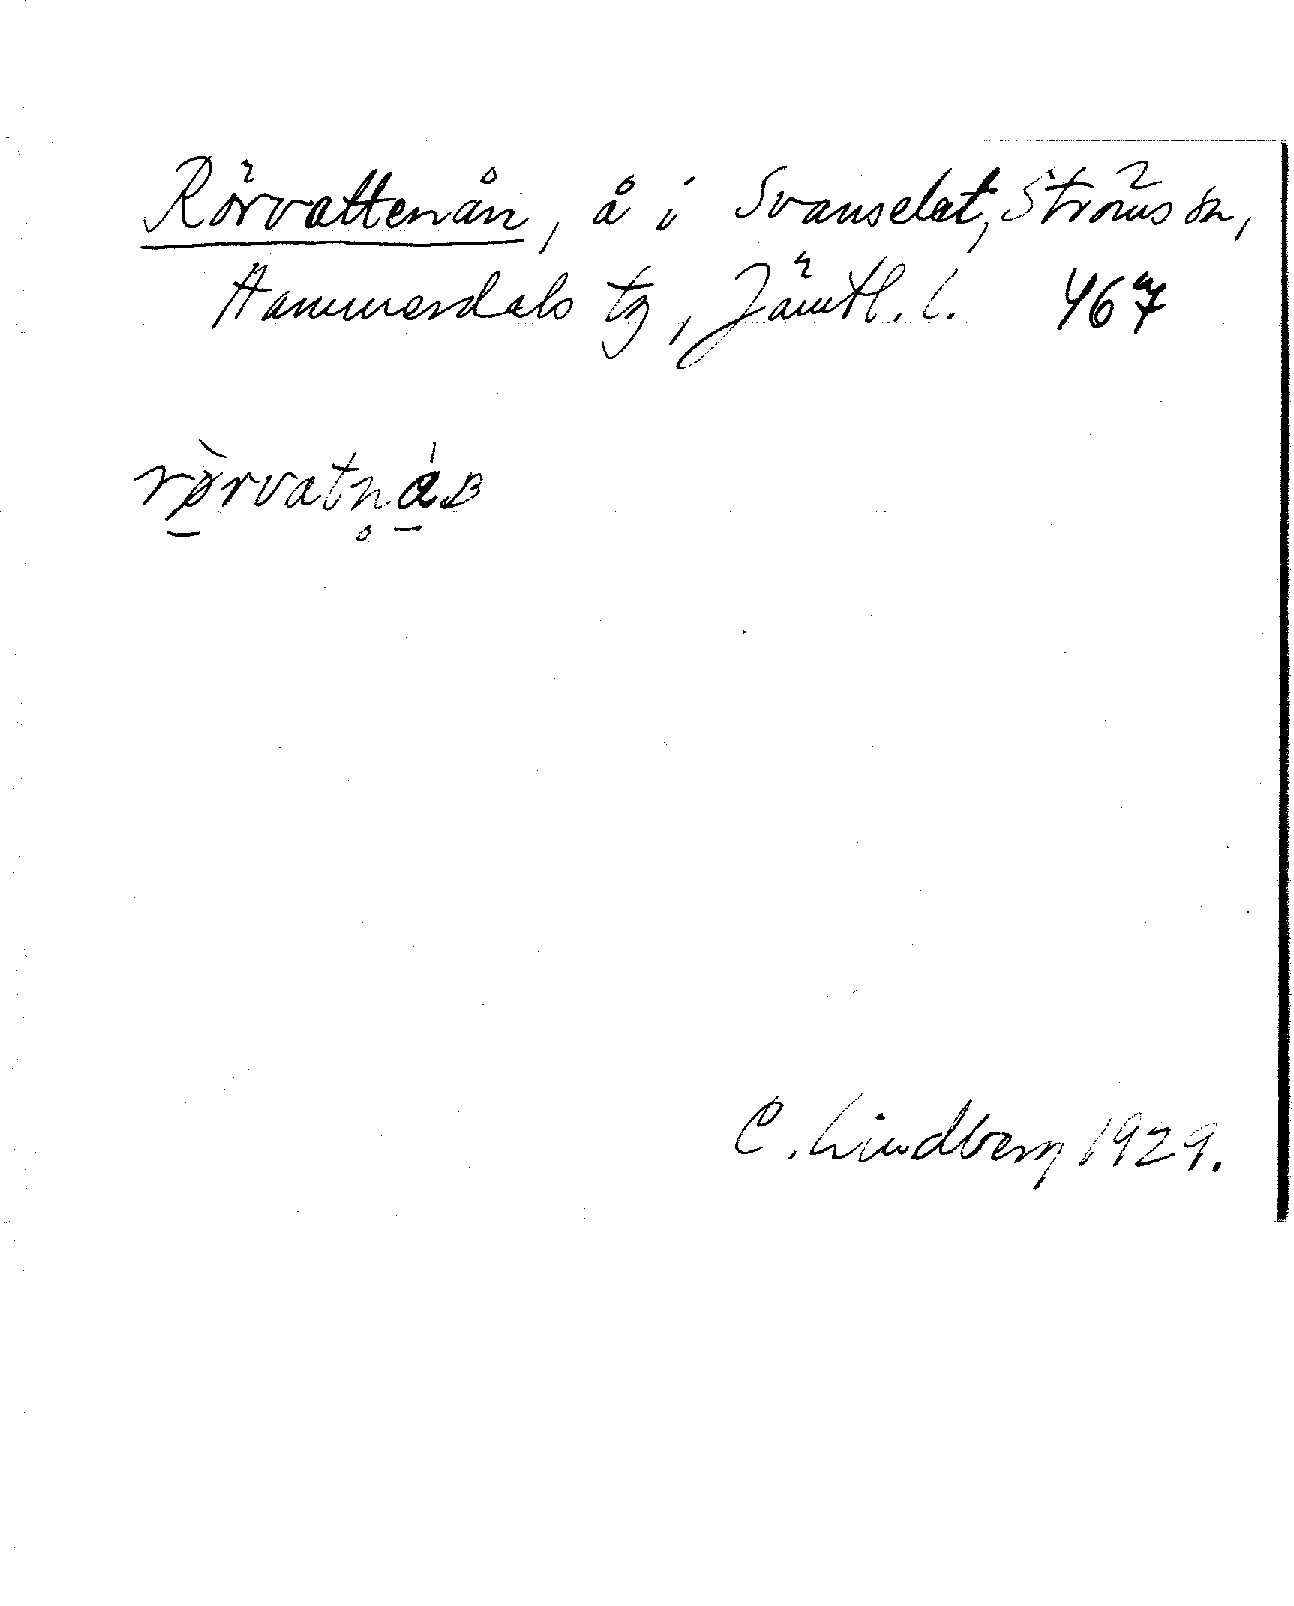 Rörvattenån, å i Svanselet, Ströms sn,
Hammerdals tg, Jämtl. l. 467
rø̠̀rvatn̥á̠ʙ
C. Lindberg 1929.